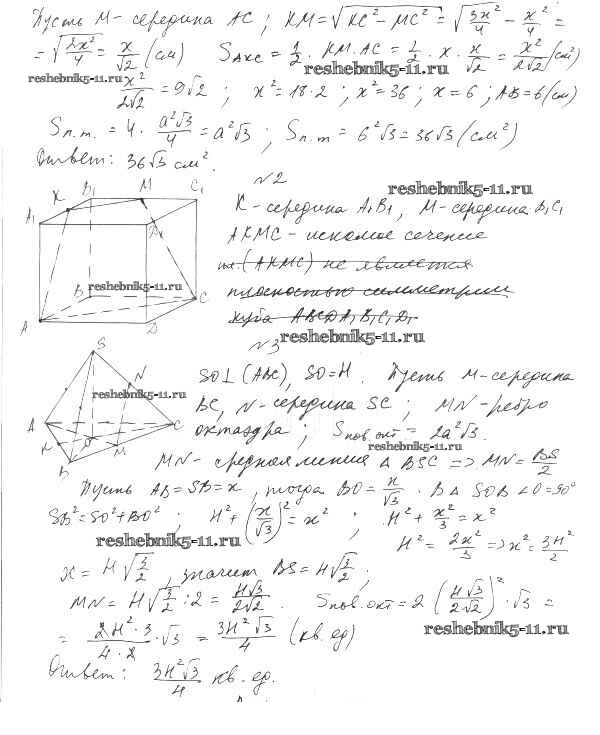 Пусть M - середина AC ; KM = √(KC² - MC²) = √(3x²/4 - x²/4) =
= √(2x²/4) = x/√2 (см) S△AKC = 1/2 · KM · AC = 1/2 · x · x/√2 = x²/2√2 (см²)
reshebnik5-11.ru
reshebnik5-11.ru
x²/2√2 = 9√2 ; x² = 18·2 ; x² = 36 ; x = 6 ; AB = 6 (см)
Sп.т. = 4 · a²√3/4 = a²√3 ; Sп.т = 6²√3 = 36√3 (см²)
Ответ: 36√3 см².
N2
reshebnik5-11.ru
K B₁ M C₁
A₁ D₁
B C
A D
reshebnik5-11.ru
K - середина A₁B₁, M - середина B₁C₁
AKMC - искомое сечение
пл. (AKMC) не является
плоскостью симметрии
куба ABCDA₁B₁C₁D₁
reshebnik5-11.ru
N3
S
N
A C
K O M
B
reshebnik5-11.ru
SO⊥(ABC), SO = H. Пусть M - середина
BC, N - середина SC ; MN - ребро
октаэдра ; Sпов.окт = 2a²√3.
reshebnik5-11.ru
MN - средняя линия △ BSC => MN = BS/2
Пусть AB = SB = x, тогда BO = x/√3 . В △ SOB ∠O = 90°
SB² = SO² + BO² ; H² + (x/√3)² = x² ; H² + x²/3 = x²
reshebnik5-11.ru
H² = 2x²/3 => x² = 3H²/2
x = H√(3/2), значит BS = H√(3/2) ;
MN = H√(3/2) : 2 = H√3/2√2 . Sпов.окт = 2 (H√3/2√2)² · √3 =
= 2H²·3/4·2 · √3 = 3H²√3/4 (кв. ед)
reshebnik5-11.ru
Ответ: 3H²√3/4 кв. ед.